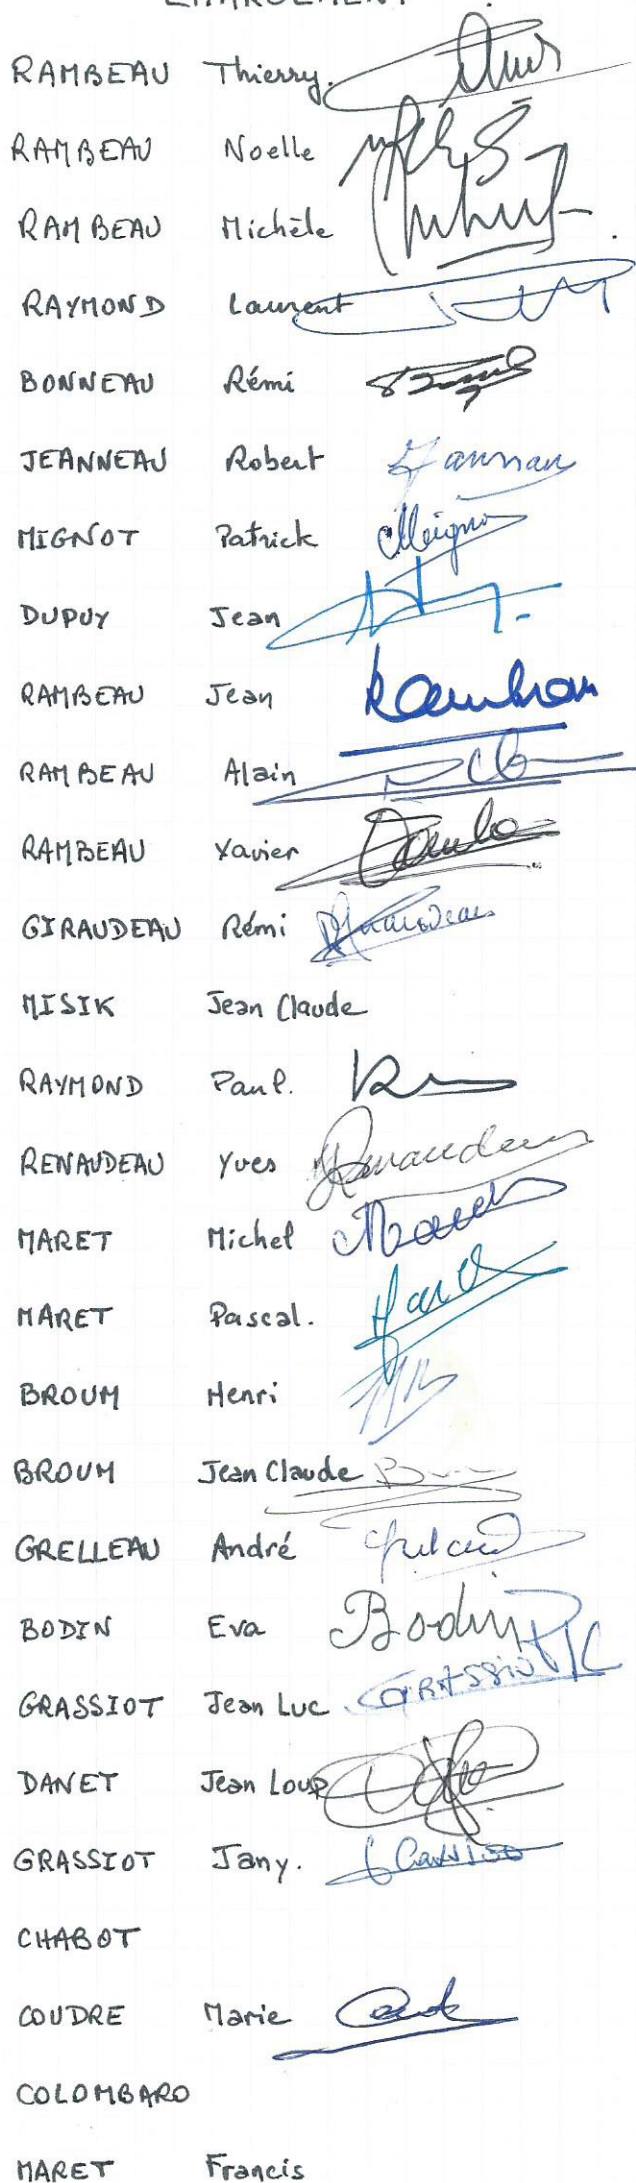 EMARGEMENT
RAMBEAU Thierry.
RAMBEAU Noelle
RAMBEAU Michèle
RAYMOND Laurent
BONNEAU Rémi
JEANNEAU Robert
MIGNOT Patrick
DUPUY Jean
RAMBEAU Jean
RAMBEAU Alain
RAMBEAU Xavier
GIRAUDEAU Rémi
MISIK Jean Claude
RAYMOND Paul.
RENAUDEAU Yves Renaudeau
MARET Michel
MARET Pascal.
BROUM Henri
BROUM Jean Claude
GRELLEAU André
BODIN Eva Bodin
GRASSIOT Jean Luc GRASSIOT JLC
DANET Jean Loup
GRASSIOT Jany.
CHABOT
COUDRE Marie
COLOMBARO
MARET Francis